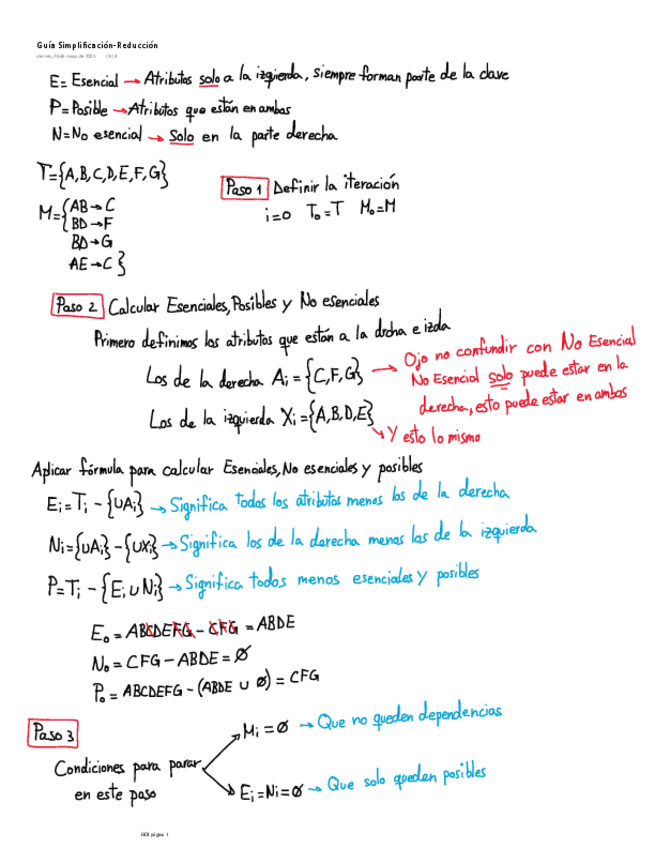 Guía Simplificación-Reducción
viernes, 26 de mayo de 2023
E = Esencial → Atributos solo a la izquierda, siempre forman parte de la clave
P = Posible → Atributos que están en ambas
N = No esencial → Solo en la parte derecha
T={A,B,C,D,E,F,G}
M={AB→C
BD→F
BD→G
AE→C}
Paso 1 Definir la iteración
i=0 T₀=T M₀=M
Paso 2 Calcular Esenciales, Posibles y No esenciales
Primero definimos los atributos que están a la drcha e izda
Los de la derecha Aᵢ = {C,F,G} → Ojo no confundir con No Esencial
No Esencial solo puede estar en la
derecha, esto puede estar en ambas
Los de la izquierda Xᵢ = {A,B,D,E}
↘ Y esto lo mismo
Aplicar fórmula para calcular Esenciales, No esenciales y posibles
Eᵢ = Tᵢ - {∪Aᵢ} → Significa todos los atributos menos los de la derecha
Nᵢ = {∪Aᵢ} - {∪Xᵢ} → Significa los de la derecha menos los de la izquierda
P = Tᵢ - {Eᵢ ∪ Nᵢ} → Significa todos menos esenciales y posibles
E₀ = ABCDEFG - CFG = ABDE
N₀ = CFG - ABDE = Ø
P₀ = ABCDEFG - (ABDE ∪ Ø) = CFG
Paso 3
Condiciones para parar
en este paso
Mᵢ = Ø → Que no queden dependencias
Eᵢ = Nᵢ = Ø → Que solo queden posibles
página 1